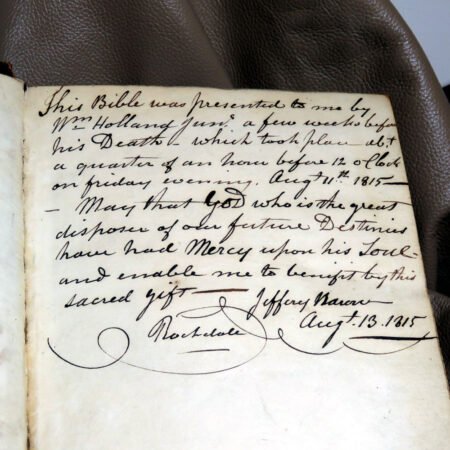 This Bible was presented to me by
Wm Holland Junr. a few weeks before
his Death - which took place abt
a quarter of an hour before 12 o Clock
on friday evening. Augt 11th 1815 —
- May that GOD who is the great
disposer of our future Destinies
have had Mercy upon his Soul -
and enable me to benefit by this
sacred gift —
Jeffery
Rochdale Augt. 13. 1815